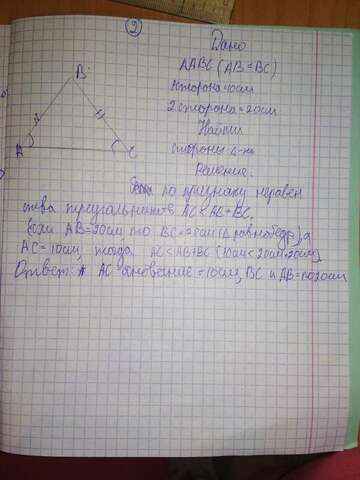 2
Дано
∆ABC (AB=BC)
1 сторона=10см
2 сторона=20см
Найти
стороны ∆-ка
Решение.
по признаку неравен
ства треугольников AC<AB+BC,
если AB=20см то BC=20см (∆ равнобедр), а
AC=10см, тогда AC<AB+BC (10см<20см+20см)
Ответ AC основание=10см, BC и AB=по20см
B
A
C